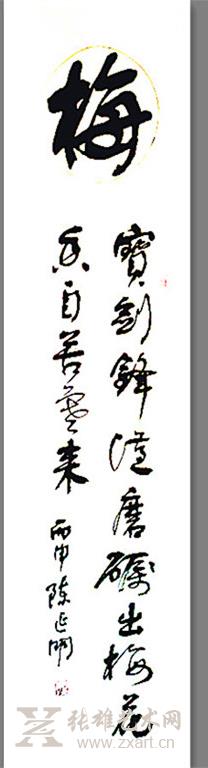 梅
寶劍鋒從磨礪出梅花
香自苦寒来
丙申陈延明
张雄艺术网
www.zxart.cn